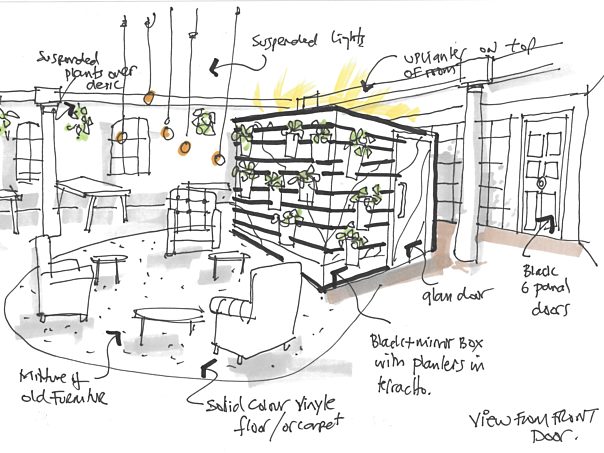 Suspended
plants over
desk
Suspended lights
uplighter on top
of room
Black
6 panel
doors
glass door
Black+mirror Box
with planters in
terracto.
Mixture of
old Furniture
Solid Colour Vinyle
floor/orcarpet
View From Front
Door.